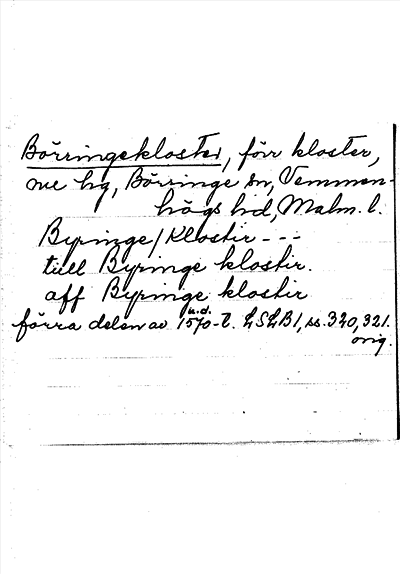 Börringekloster, förr kloster,
nu hg, Börringe sn, Vemmen-
högs hd, Malm. l.
Byringe/Klostir - - -
till Byringe klostir.
aff Byringe klostir
u.d.
förra delen av 1570-t. LSLB1, ss. 320, 321.
orig.